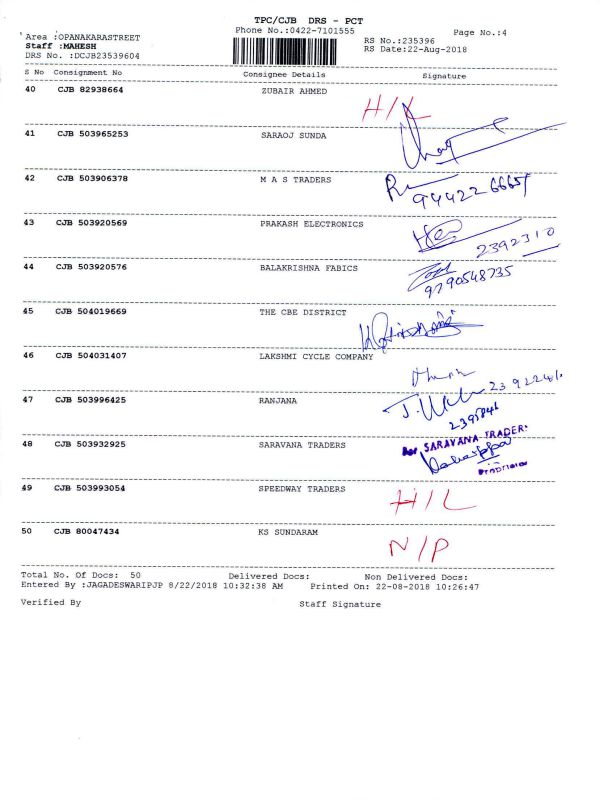 TPC/CJB DRS - PCT
Phone No.:0422-7101555
Page No.:4
Area :OPANAKARASTREET
RS No.:235396
Staff :MAHESH
RS Date:22-Aug-2018
DRS No. :DCJB23539604
S No Consignment No Consignee Details Signature
40 CJB 82938664 ZUBAIR AHMED
H/L
41 CJB 503965253 SARAOJ SUNDA
42 CJB 503906378 M A S TRADERS
43 CJB 503920569 PRAKASH ELECTRONICS
2392310
44 CJB 503920576 BALAKRISHNA FABICS
9790548735
45 CJB 504019669 THE CBE DISTRICT
46 CJB 504031407 LAKSHMI CYCLE COMPANY
47 CJB 503996425 RANJANA
48 CJB 503932925 SARAVANA TRADERS
SARAVANA TRADERS
Proprietor
49 CJB 503993054 SPEEDWAY TRADERS H/L
50 CJB 80047434 KS SUNDARAM N/P
Total No. Of Docs: 50 Delivered Docs: Non Delivered Docs:
Entered By :JAGADESWARIPJP 8/22/2018 10:32:38 AM Printed On: 22-08-2018 10:26:47
Verified By Staff Signature